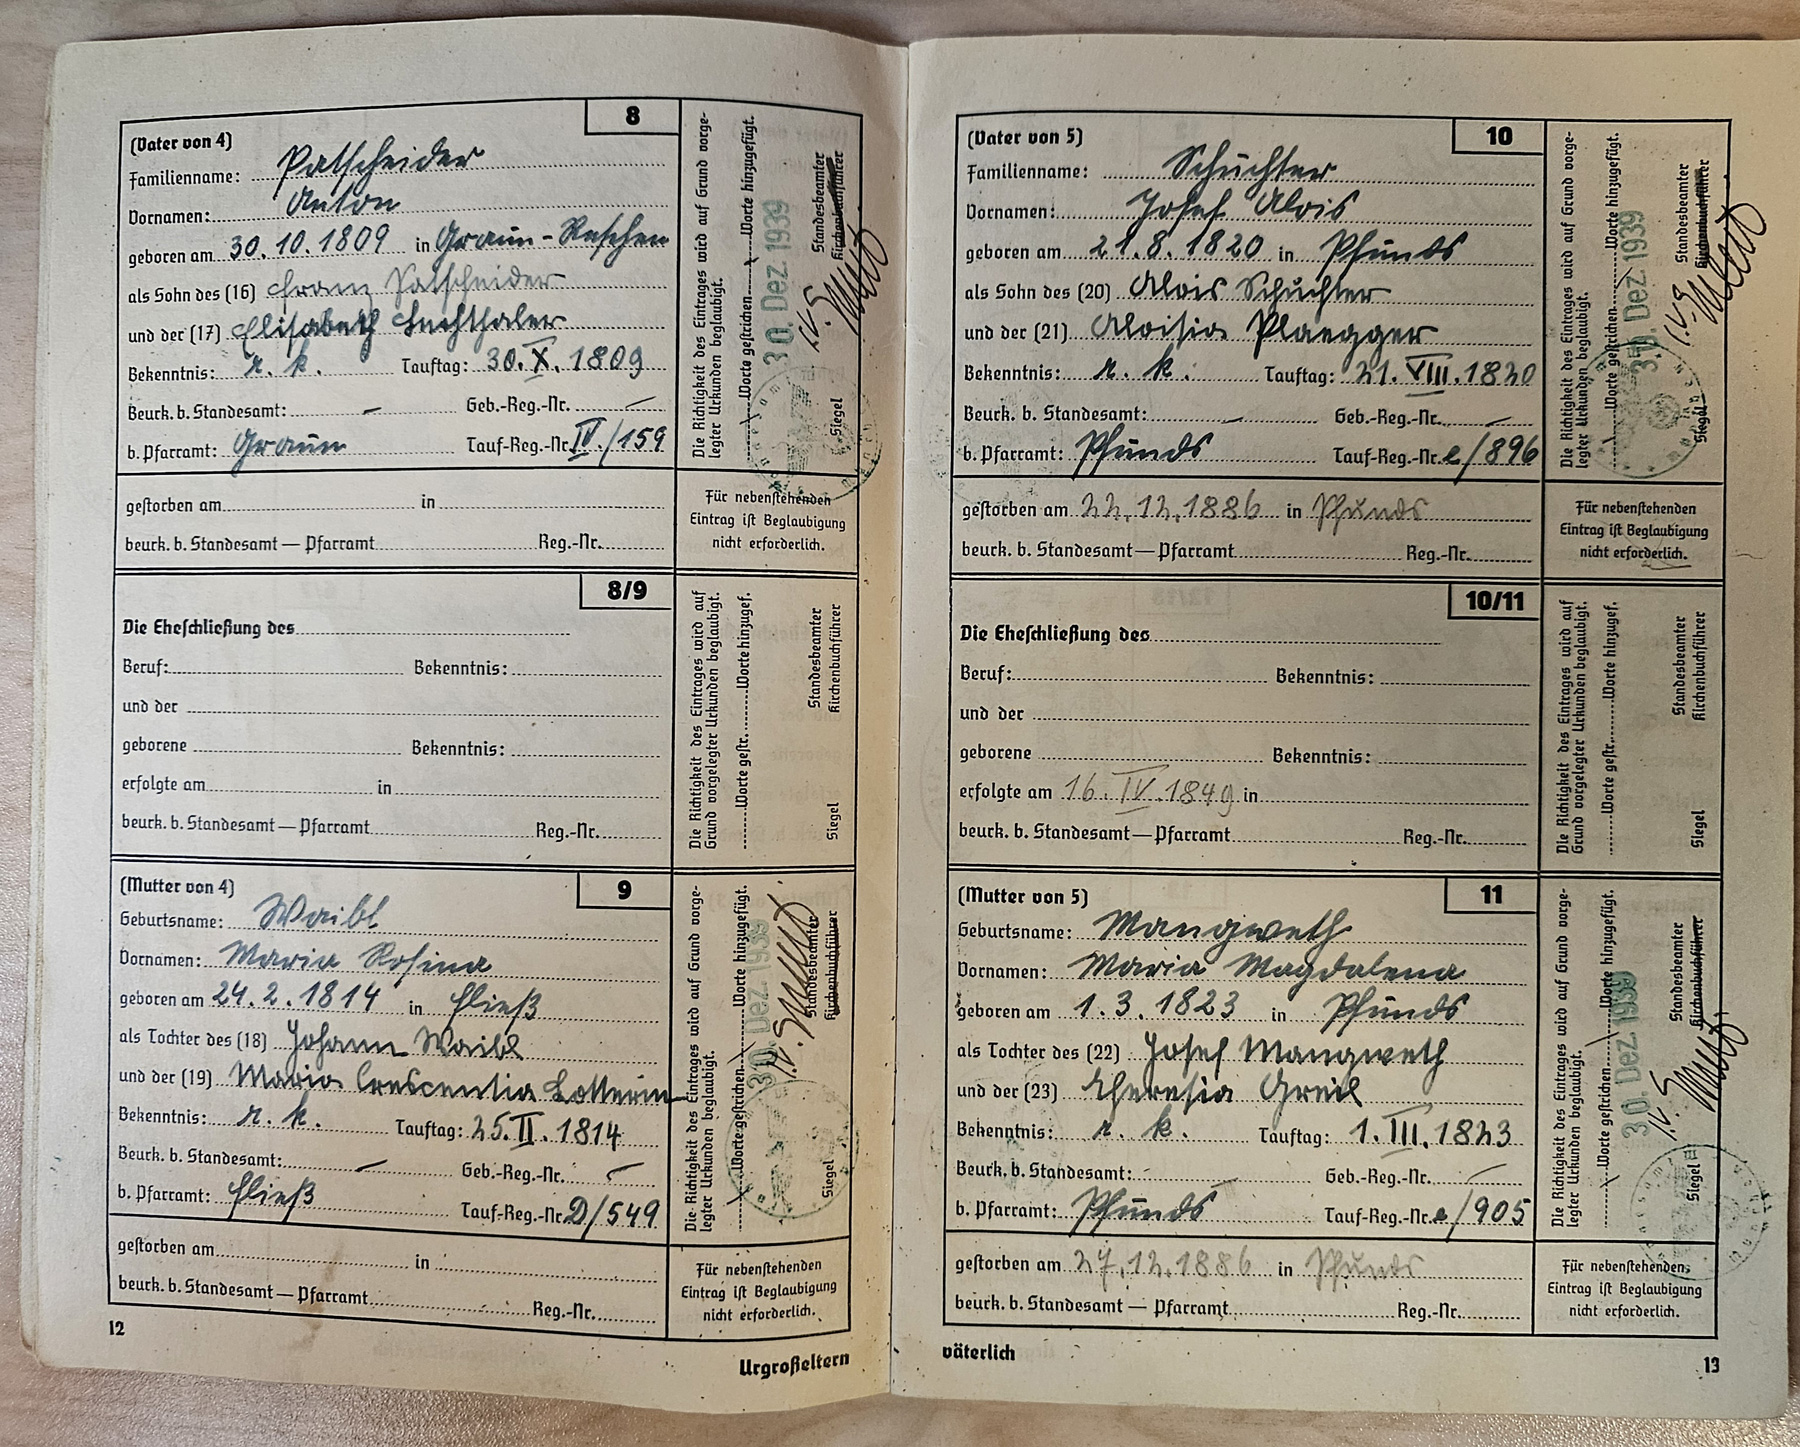 8
(Vater von 4)
Familienname: Patscheider
Vornamen: Anton
geboren am 30.10.1809 in Graun-Reschen
als Sohn des (16) Franz Patscheider
und der (17) Elisabeth Luchthaler
Bekenntnis: r. k. Tauftag: 30.X.1809
Beurk. b. Standesamt: — Geb.-Reg.-Nr. —
b. Pfarramt: Graun Tauf-Reg.-Nr. IV./159
gestorben am in
beurk. b. Standesamt — Pfarramt Reg.-Nr.
Die Richtigkeit des Eintrages wird auf Grund vorge-
legter Urkunden beglaubigt.
Worte gestrichen Worte hinzugefügt.
30. Dez. 1939
Standesbeamter
Kirchenbuchführer
Siegel
Für nebenstehenden
Eintrag ist Beglaubigung
nicht erforderlich.
8/9
Die Eheschließung des
Beruf: Bekenntnis:
und der
geborene Bekenntnis:
erfolgte am in
beurk. b. Standesamt — Pfarramt Reg.-Nr.
Die Richtigkeit des Eintrages wird auf
Grund vorgelegter Urkunden beglaubigt.
Worte gestr. Worte hinzugef.
Standesbeamter
Kirchenbuchführer
Siegel
9
(Mutter von 4)
Geburtsname: Waibl
Vornamen: Maria Rosina
geboren am 24.2.1814 in Fließ
als Tochter des (18) Johann Waibl
und der (19) Maria Crescentia Lotterin
Bekenntnis: r. k. Tauftag: 25.II.1814
Beurk. b. Standesamt: — Geb.-Reg.-Nr. —
b. Pfarramt: Fließ Tauf-Reg.-Nr. D/549
gestorben am in
beurk. b. Standesamt — Pfarramt Reg.-Nr.
Die Richtigkeit des Eintrages wird auf Grund vorge-
legter Urkunden beglaubigt.
Worte gestrichen Worte hinzugefügt.
30. Dez. 1939
I.V.
Standesbeamter
Kirchenbuchführer
Siegel
Für nebenstehenden
Eintrag ist Beglaubigung
nicht erforderlich.
12
Urgroßeltern
10
(Vater von 5)
Familienname: Schuchter
Vornamen: Josef Alois
geboren am 21.8.1820 in Pfunds
als Sohn des (20) Alois Schuchter
und der (21) Aloisia Plangger
Bekenntnis: r. k. Tauftag: 21.VIII.1820
Beurk. b. Standesamt: — Geb.-Reg.-Nr. —
b. Pfarramt: Pfunds Tauf-Reg.-Nr. e/896
gestorben am 22.12.1886 in Pfunds
beurk. b. Standesamt — Pfarramt Reg.-Nr.
Die Richtigkeit des Eintrages wird auf Grund vorge-
legter Urkunden beglaubigt.
Worte gestrichen Worte hinzugefügt.
30. Dez. 1939
Standesbeamter
Kirchenbuchführer
Siegel
Für nebenstehenden
Eintrag ist Beglaubigung
nicht erforderlich.
10/11
Die Eheschließung des
Beruf: Bekenntnis:
und der
geborene Bekenntnis:
erfolgte am 16.IV.1849 in
beurk. b. Standesamt — Pfarramt Reg.-Nr.
Die Richtigkeit des Eintrages wird auf
Grund vorgelegter Urkunden beglaubigt.
Worte gestr. Worte hinzugef.
Standesbeamter
Kirchenbuchführer
Siegel
11
(Mutter von 5)
Geburtsname: Mangweth
Vornamen: Maria Magdalena
geboren am 1.3.1823 in Pfunds
als Tochter des (22) Josef Mangweth
und der (23) Theresia Greil
Bekenntnis: r. k. Tauftag: 1.III.1823
Beurk. b. Standesamt: Geb.-Reg.-Nr. —
b. Pfarramt: Pfunds Tauf-Reg.-Nr. e/905
gestorben am 27.12.1886 in Pfunds
beurk. b. Standesamt — Pfarramt Reg.-Nr.
Die Richtigkeit des Eintrages wird auf Grund vorge-
legter Urkunden beglaubigt.
Worte gestrichen Worte hinzugefügt.
30. Dez. 1939
Standesbeamter
Kirchenbuchführer
Siegel
Für nebenstehenden
Eintrag ist Beglaubigung
nicht erforderlich.
väterlich
13